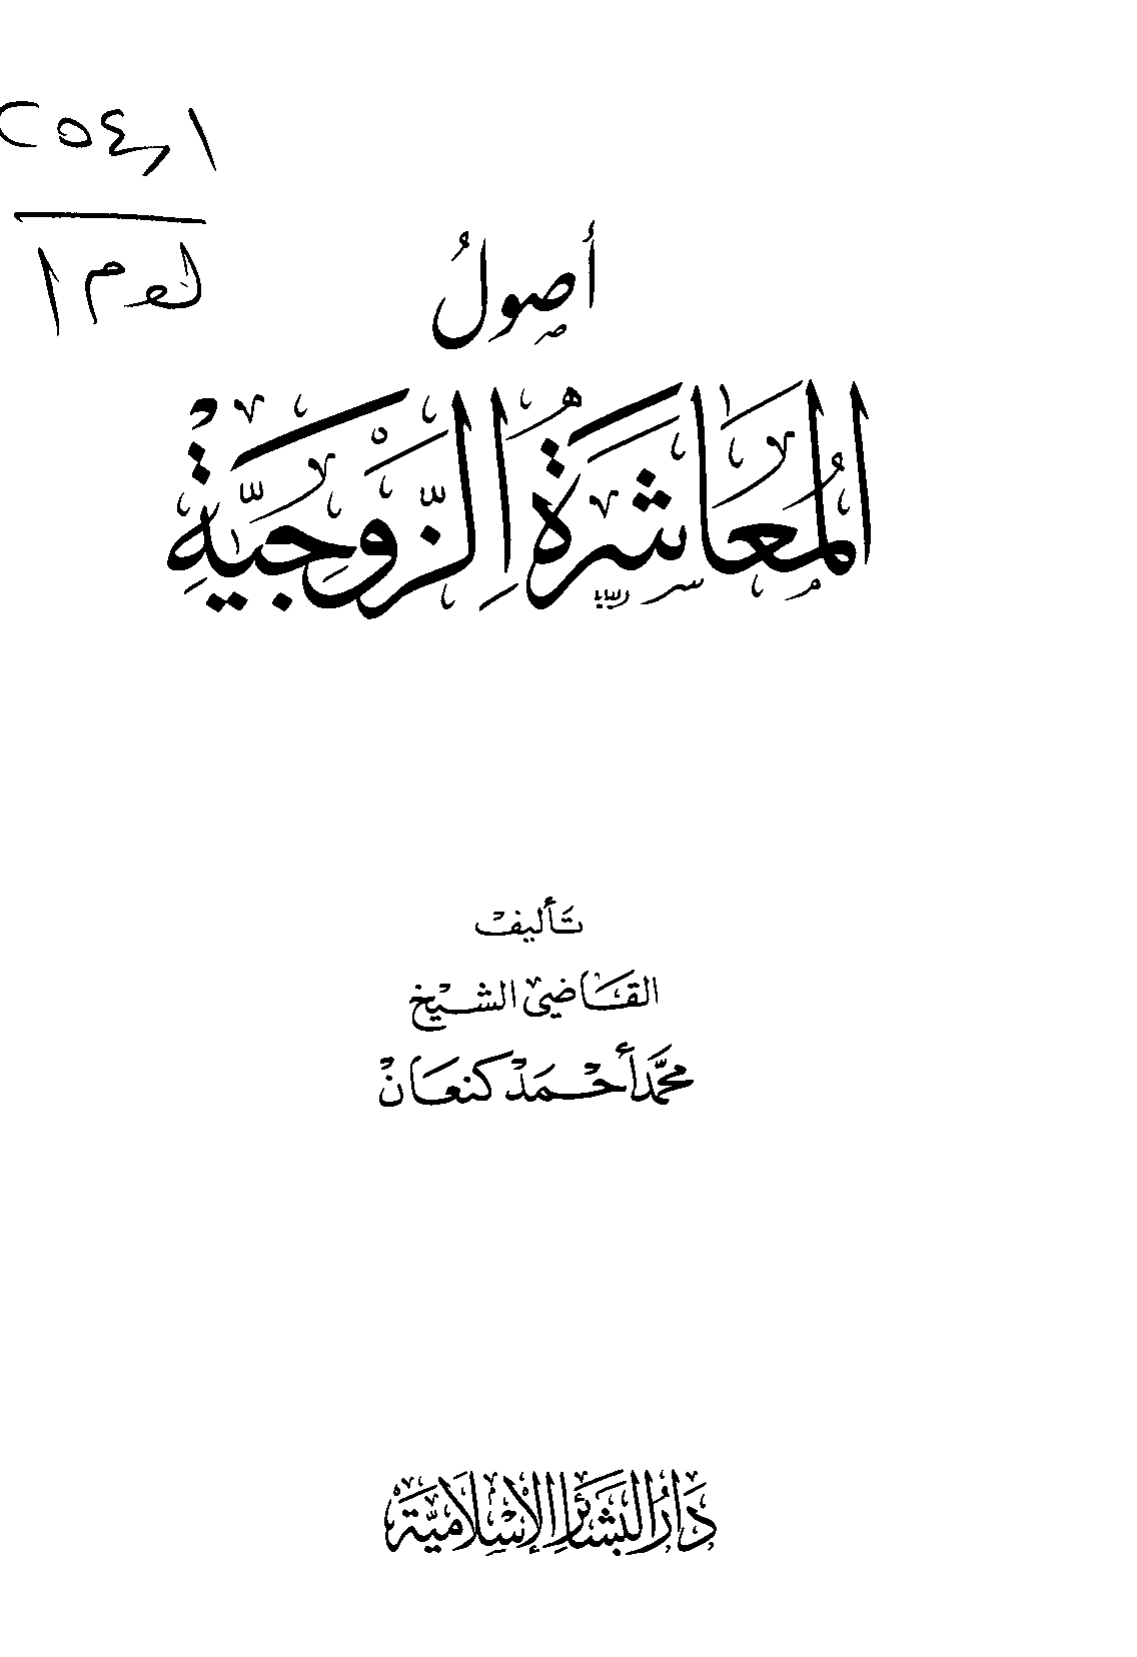 أصولُ
المُعَاشَرَةُ الزَّوجِيَّةِ
تَأليف
القَاضِي الشَّيخ
محمَّد أحْمَد كنعَان
دَارُ البَشَائِرِ الإِسْلَامِيَّة